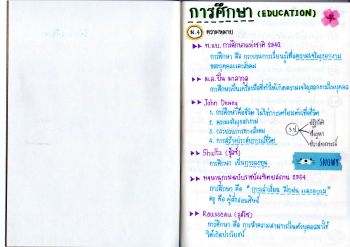 การศึกษา (EDUCATION)
ม.4 ความหมาย
พ.ร.บ. การศึกษาแห่งชาติ 2542
การศึกษา คือ กระบวนการเรียนรู้เพื่อความเจริญงอกงาม
ของบุคคลและสังคม
ม.ล.ปิ่น มาลากุล
การศึกษาเป็นเครื่องมือที่ทำให้เกิดความเจริญงอกงามในบุคคล
John Dewey
1. การศึกษาคือชีวิต ไม่ใช่การเตรียมตัวเพื่อชีวิต
2. ความเจริญงอกงาม
3. กระบวนการทางสังคม
4. การสร้างประสบการณ์ชีวิต
3 ป.
ปฏิบัติ
ปัญหา
ประสบการณ์
SNOWY
การศึกษา เป็นการลงทุน
พจนานุกรมฉบับราชบัณฑิตยสถาน 2554
การศึกษา คือ " การเล่าเรียน ฝึกฝน และอบรม"
ครู คือ ผู้สั่งสอนศิษย์
Rousseau (รุสโซ)
การศึกษา คือ การนำความสามารถในตัวบุคคลมาใช้
ให้เกิดประโยชน์